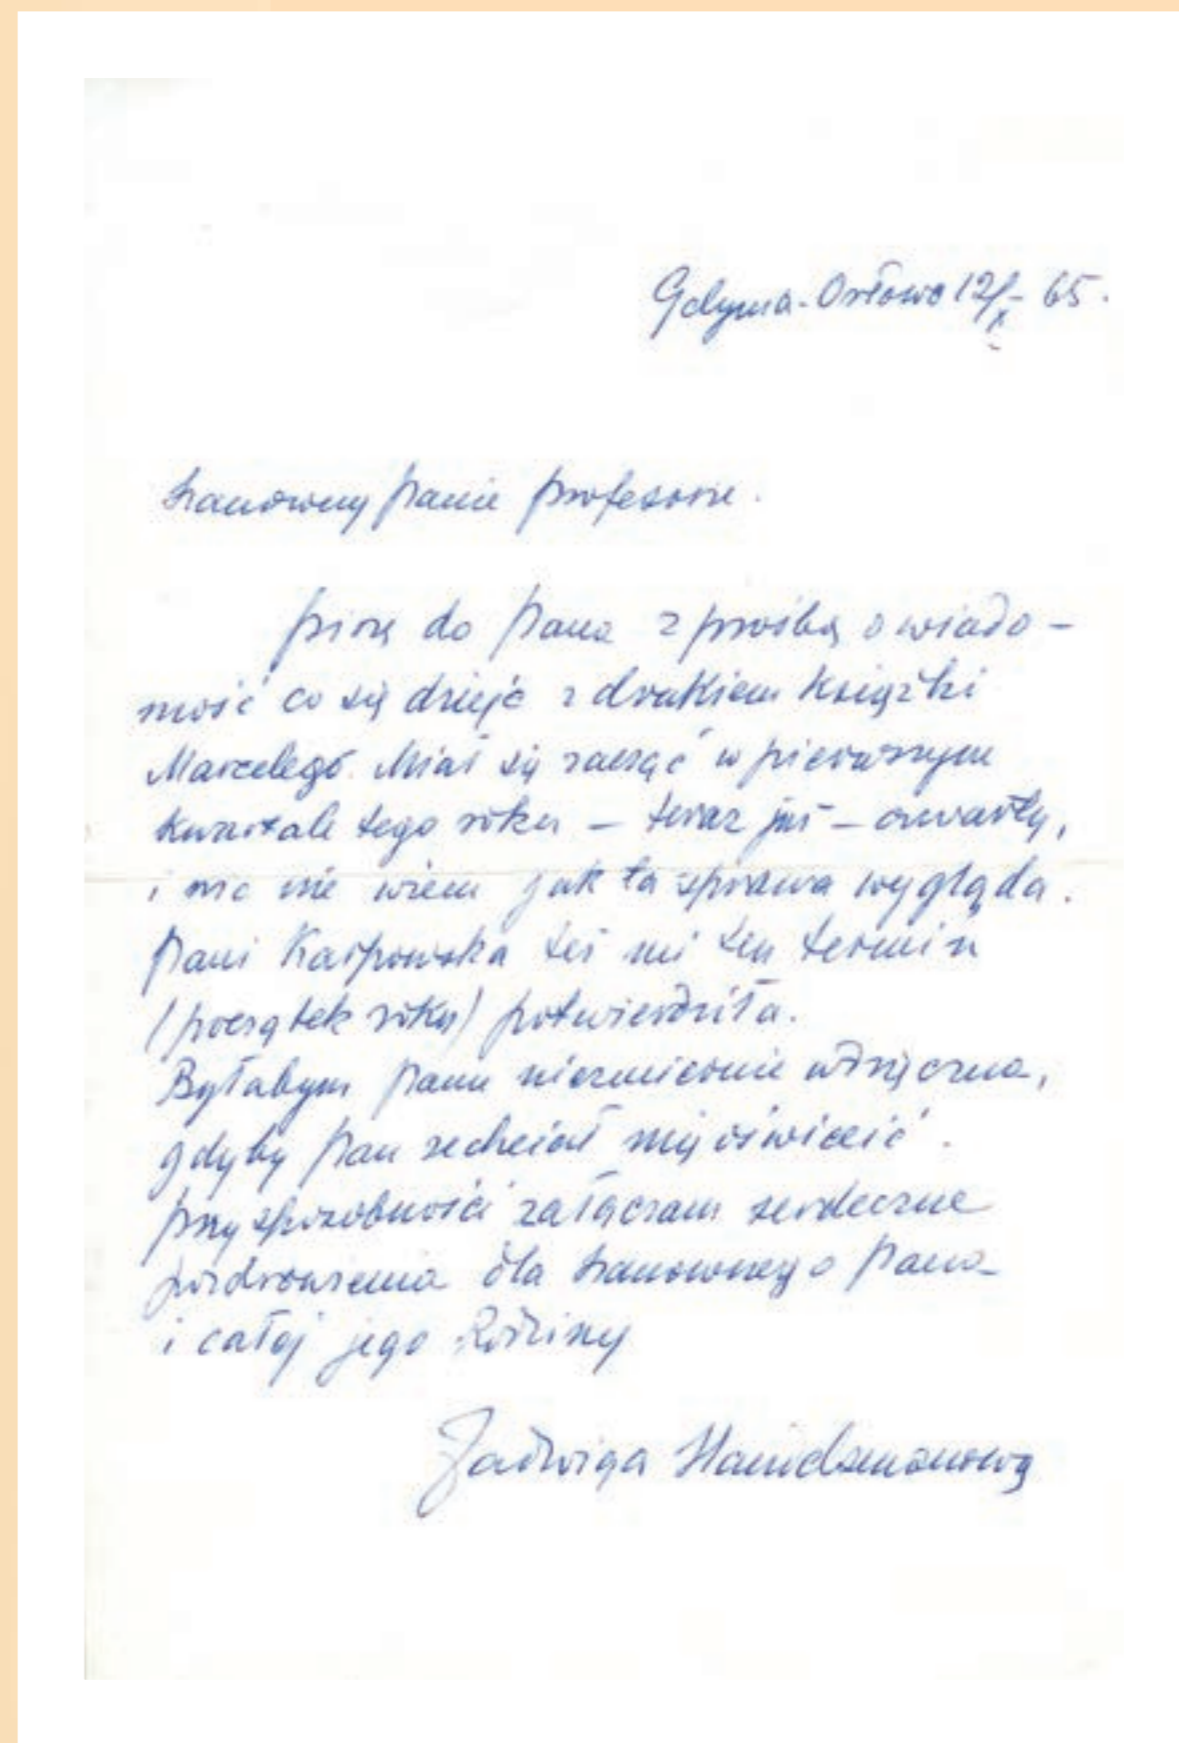 Gdynia-Orłowo 12/X-65.
Szanowny Panie Profesorze.
Piszę do Pana z prośbą o wiado-
mość co się dzieje z drukiem książki
Marcelego. Miał się zacząć w pierwszym
kwartale tego roku – teraz już – czwarty,
i nic nie wiem jak ta sprawa wygląda.
Pani Karpowska też mi ten termin
(początek roku) potwierdziła.
Byłabym Panu niezmiernie wdzięczna,
gdyby Pan zechciał mię oświecić.
Przy sposobności załączam serdeczne
pozdrowienia dla Szanownego Pana
i całej jego Rodziny
Jadwiga